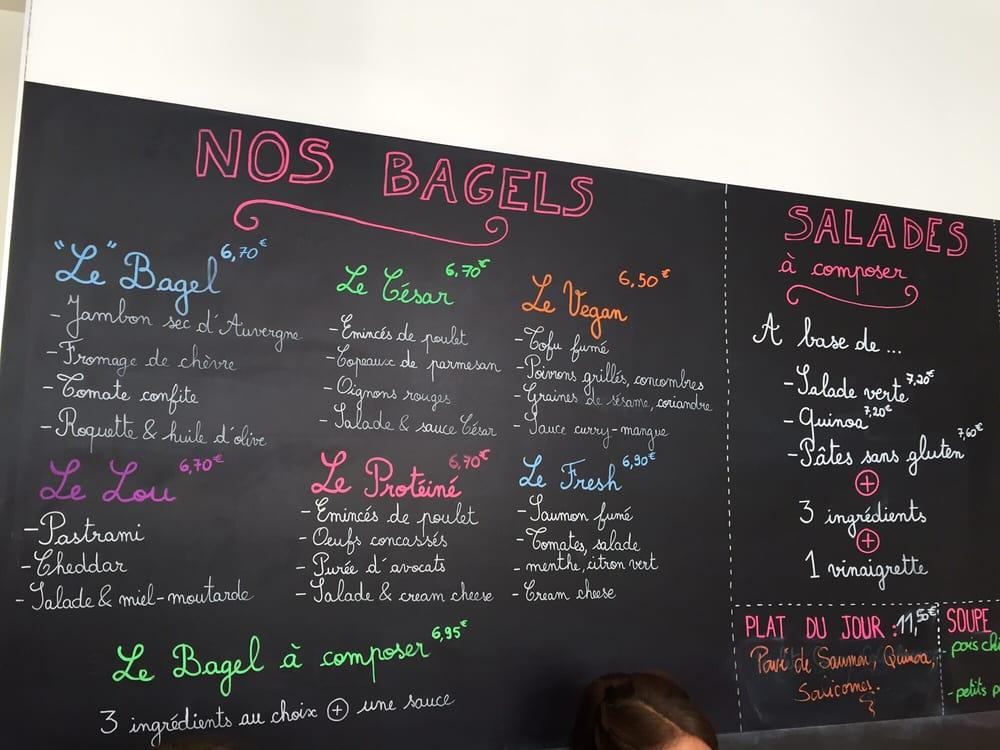 NOS BAGELS
"Le" Bagel 6,70€
- Jambon sec d'Auvergne
- Fromage de chèvre
- Tomate confite
- Roquette & huile d'olive
Le César 6,70€
- Emincés de poulet
- Copeaux de parmesan
- Oignons rouges
- Salade & sauce César
Le Vegan 6,50€
- Tofu fumé
- Poivrons grillés, concombres
- Graines de sésame, coriandre
- Sauce curry-mangue
Le Lou 6,70€
- Pastrami
- Cheddar
- Salade & miel-moutarde
Le Protéiné 6,70€
- Emincés de poulet
- Oeufs concassés
- Purée d'avocats
- Salade & cream cheese
Le Fresh 6,90€
- Saumon fumé
- Tomates, salade
- menthe, citron vert
- Cream cheese
Le Bagel à composer 6,95€
3 ingrédients au choix + une sauce
SALADES
à composer
A base de ...
- Salade verte 7,20€
- Quinoa 7,20€
- Pâtes sans gluten 7,60€
+
3 ingrédients
+
1 vinaigrette
PLAT DU JOUR : 11,50€
Pavé de Saumon, Quinoa,
SOUPE
- pois chi
- petits p